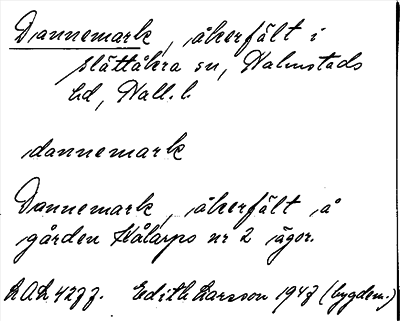 Dannemark, åkerfält i
Slättåkra sn, Halmstads
hd, Hall. l.
dannemark
Dannemark, åkerfält å
gården Hålarps nr 2 ägor.
LAL 4277. Edith Larsson 1947 (bygdem.)